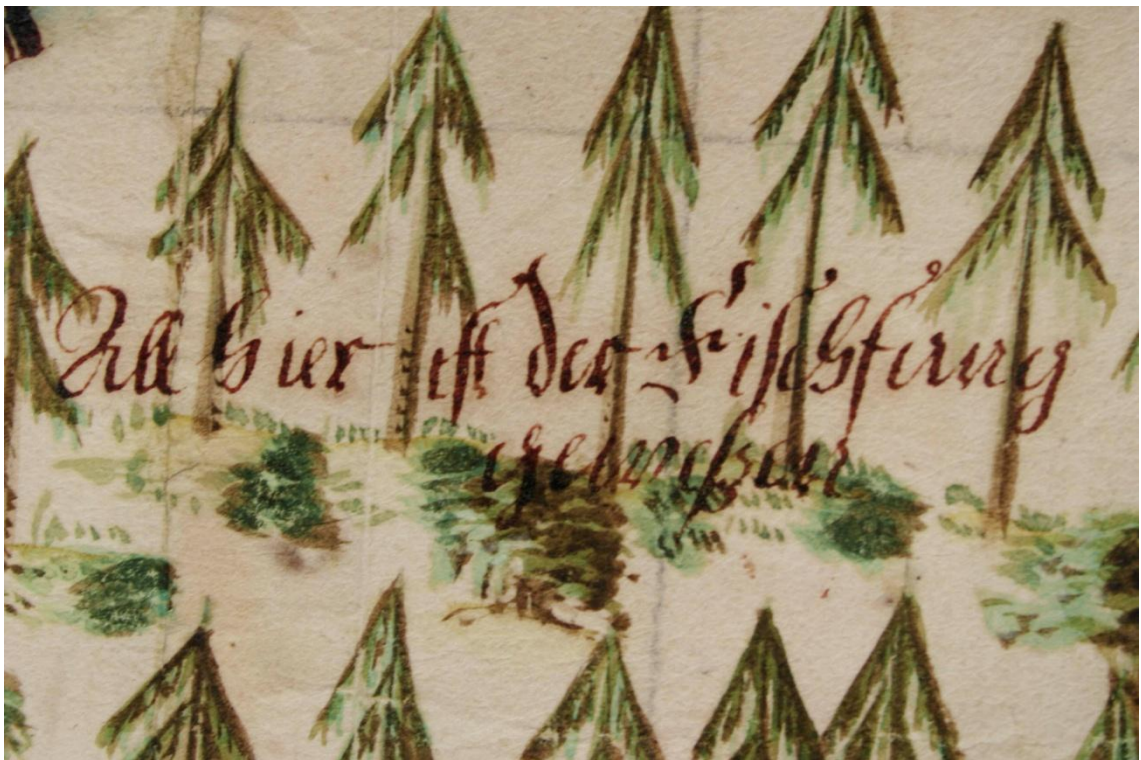 All hier ist der Fischfang
geweßen